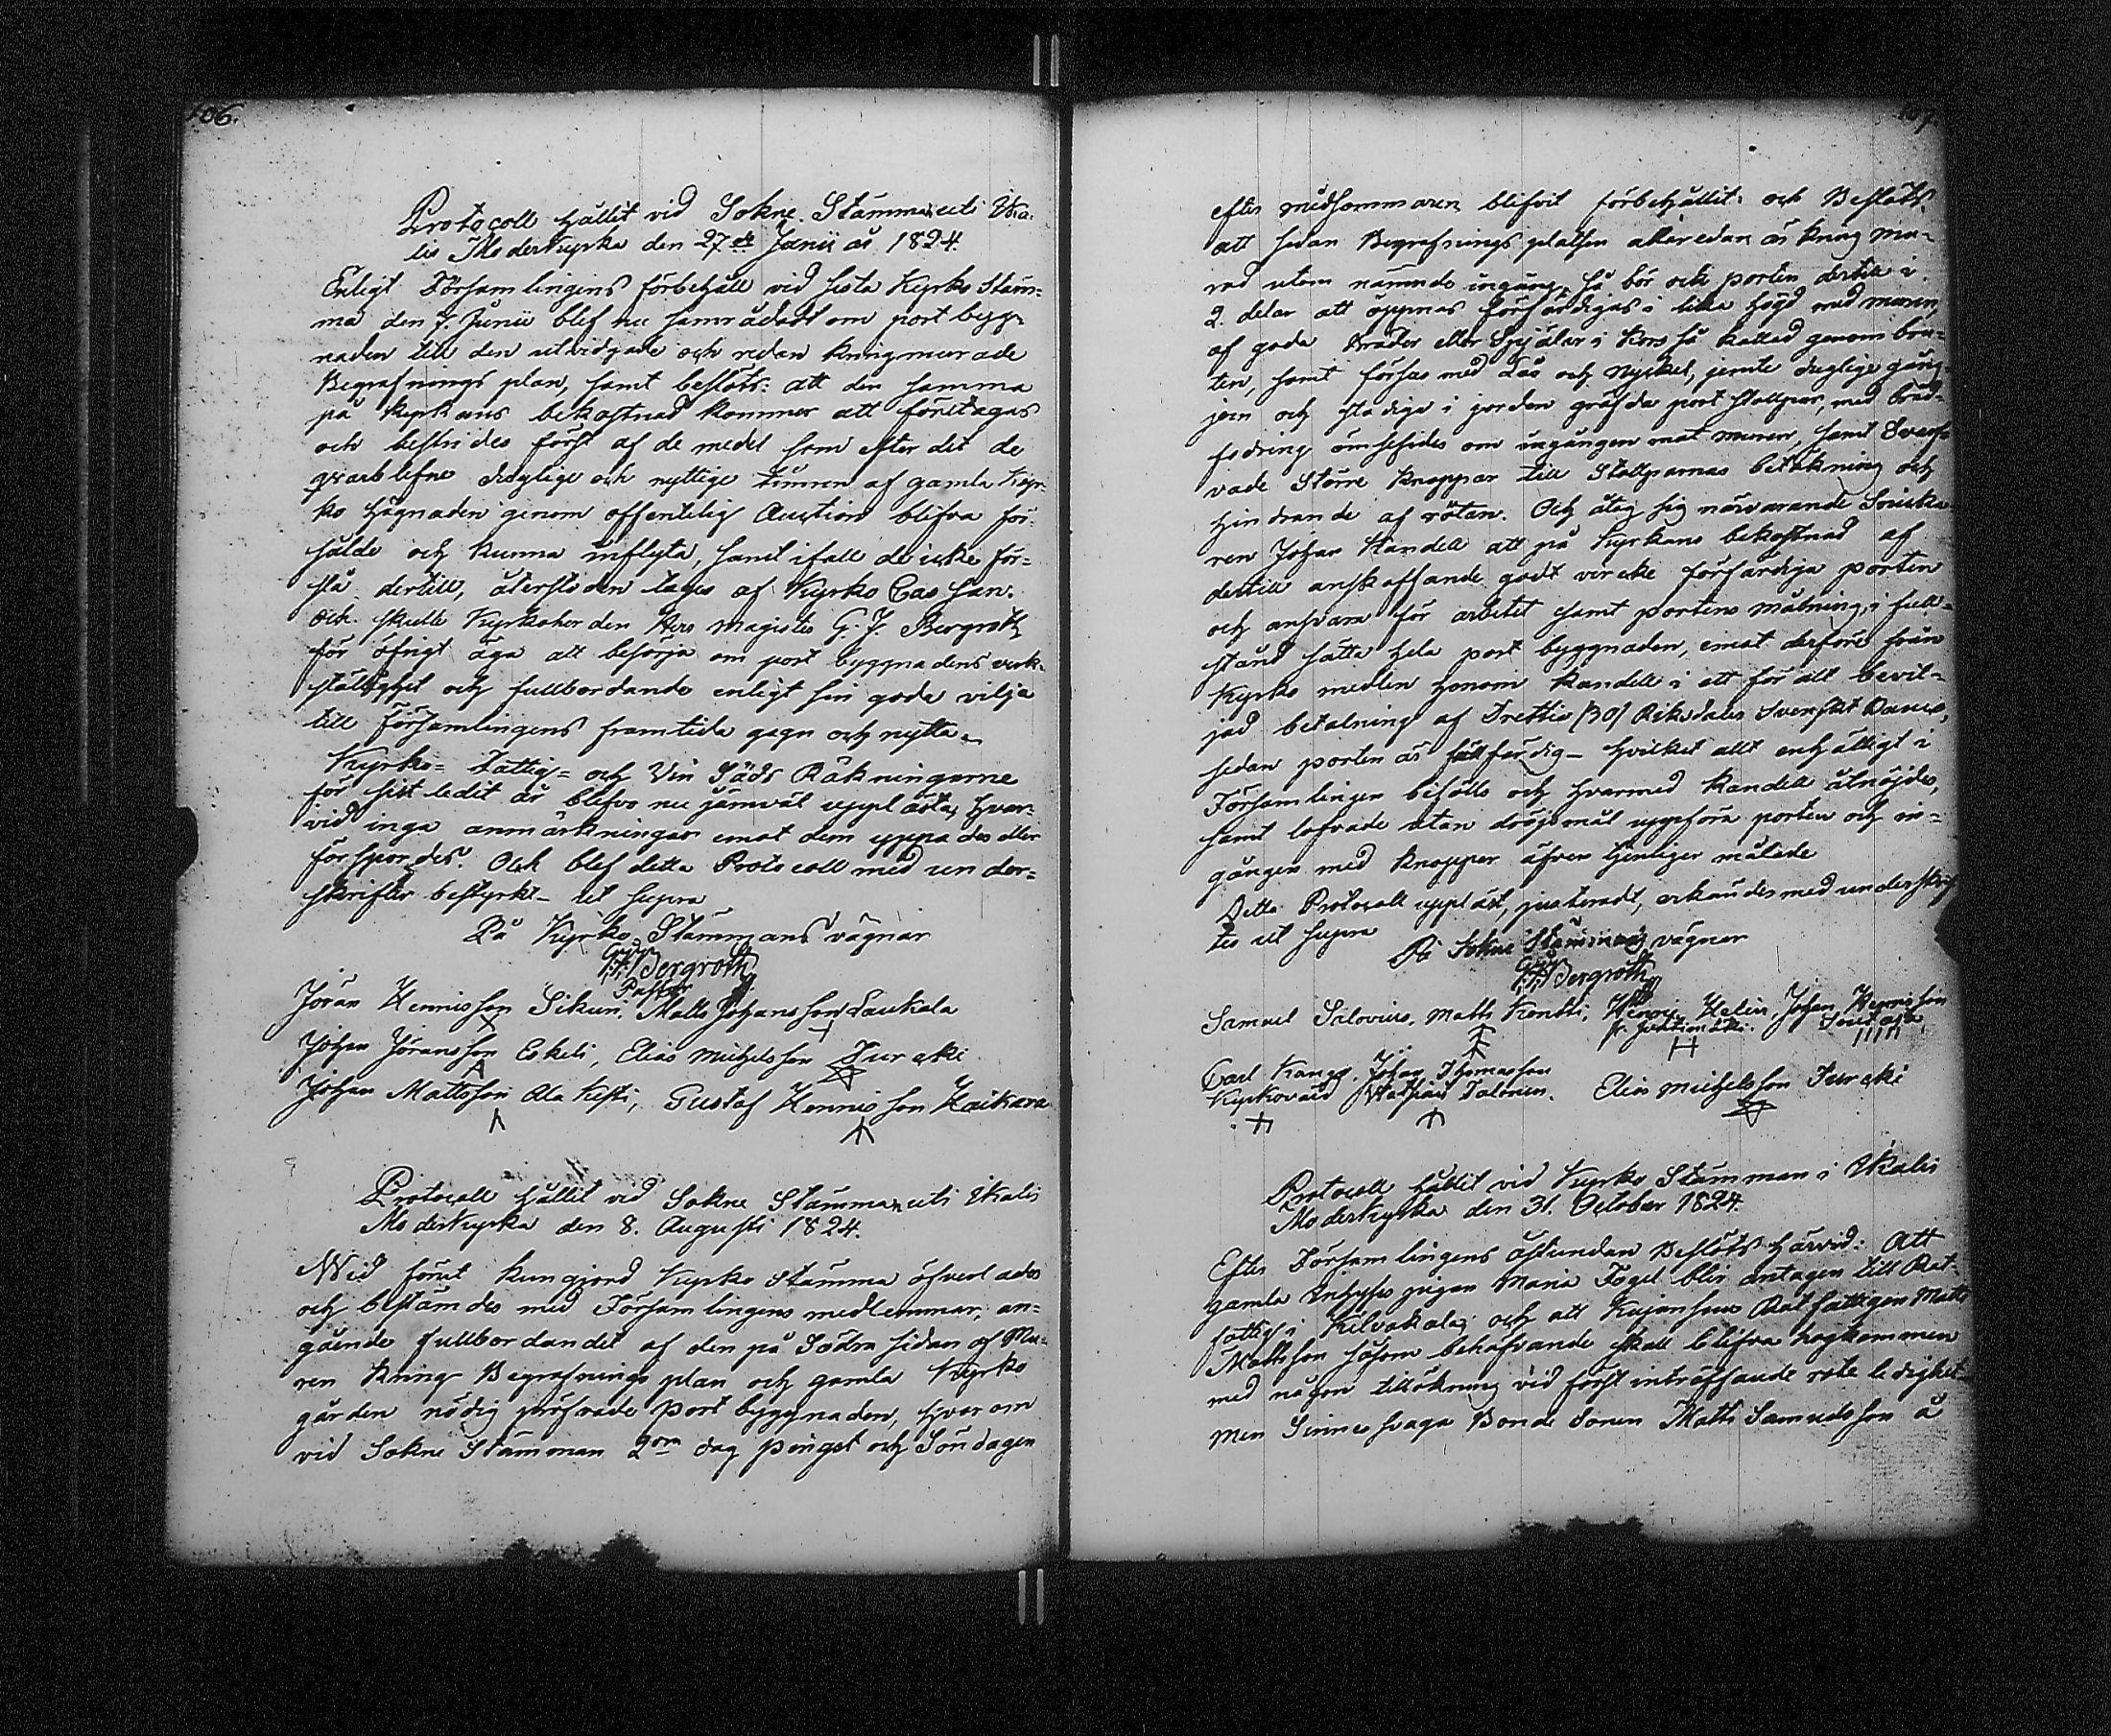 106.
Protocoll hållit vid Sokne Stämman uti Ika-
lis Moderkyrka den 27de Junii år 1824.
Enligt Församlingens förbehåll vid sista Kyrko Stäm-
ma den 7. Junii blef nu samrådadt om port bygg-
naden till den utvidgade och redan kringmurade
Begrafnings plan, samt beslöts: att den samma
på kyrkans bekostnad kommer att företagas
och bestrides först af de medel som efter det de
qvarblefne duglige och nyttige timren af gamla Kyr-
ko hägnaden genom offentelig Auction blifva för-
sålde och kunna inflyta, samt ifall de icke för-
slå dertill, återstoden tages af Kyrko Cassan.
Och skulle Kyrkoherden Herr Magister G. J. Bergroth
för öfrigt äga att besörja om port byggnadens verk-
ställighet och fullbordande enligt sin goda vilja
till Församlingens framtida gagn och nytta.
Kyrko- Fattig- och Vin Säds Räkningarne
för sist ledit år blefvo nu jämväl uppläste, hvar-
vid inga anmärkningar emot dem yppades eller
försporges. Och blef detta Protocoll med under-
skrifter bestyrkt - ut supra
På Kyrko Stämmans vägnar
G. J. Bergroth
Pastor
Jöran Hennisson Sikuri, Matts Johansson Laukala
Johan Jöransson Eskeli, Elias Michelsson Jureki
Johan Mattsson Ala Kesti, Gustaf Hennisson Haikara
Protocoll hållit vid Sokne Stämman uti Ikalis
Moderkyrka den 8. Augusti 1824.
Wid förut kungjord Kyrko Stämma öfverlades
och bestämdes med Församlingens medlemmar, an-
gående fullbordandet af den på Södra sidan af Mu-
ren kring Begrafnings plan och gamla Kyrko
gården nödig pröfvade Port byggnaden, hvarom
vid Sokne Stämman 2dra dag pingst och Söndagen
107.
efter midsommaren blifvit förbehållit: och Beslöts
att sedan Begrafnings platsen allaredan är kring mu-
rad utom nämnde ingång, så bör ock porten dertill i
2. delar att öppnas förfärdigas i lika högd med muren,
af goda bräder eller Spjälar i Kors så kallad genombru-
ten, samt förses med Lås och Nyckel, jemte duglige gång-
jern och stadige i jorden gräfde port stolpar, med bräd-
fodring ömsesides om ingången mot muren, samt Svarf-
vade Större Knappar till Stolparnas betäkning och
hindrande af rötan. Och åtog sig närvarande Snicka-
ren Johan Kandell att på Kyrkans bekostnad af
dertill anskaffande godt vircke förfärdiga porten
och ansvara för arbetet samt portens målning, i full-
stånd sätta hela port byggnaden, emot derföre från
Kyrko medlen honom Kandell i ett för allt bevil-
jad betalning af Trettio /30/ Riksdaler Svenskt Banco,
sedan porten är fullfärdig - hvilket allt enhälligt i
Församlingen bifölls och hvarmed Kandell åtnöjdes,
samt lofvade utan drögsmål uppföra porten och in-
gången med Knappar äfven tjenligen målade
Detta Protocoll uppläst, justeradt, erkändes med underskrif-
ter ut supra
På Sokne Stämmans vägnar
G. J. Bergroth
Samuel Salovius, Matts Kontti, Henric Helin, Johan Hennisson
Carl Kangg, Johan Thomasson Elias Michelsson Jureki
Kyrkovärd Mathias Talonen.
Protocoll hållit vid Kyrko Stämman i Ikalis
Moderkyrka den 31. October 1824.
Efter Församlingens åstundan Beslöts härvid: Att
gamla Inhyses pigan Maria Fogel blir antagen till Rot-
fattig i Kilvakala; och att Kujansuu Rotfattigen Matts
Mattsson såsom behöfvande skall blifva hogkommen
med någon tillökning vid först inträffande rote ledighet
men Sinnessvaga Bonde Sonen Matts Samuelsson å